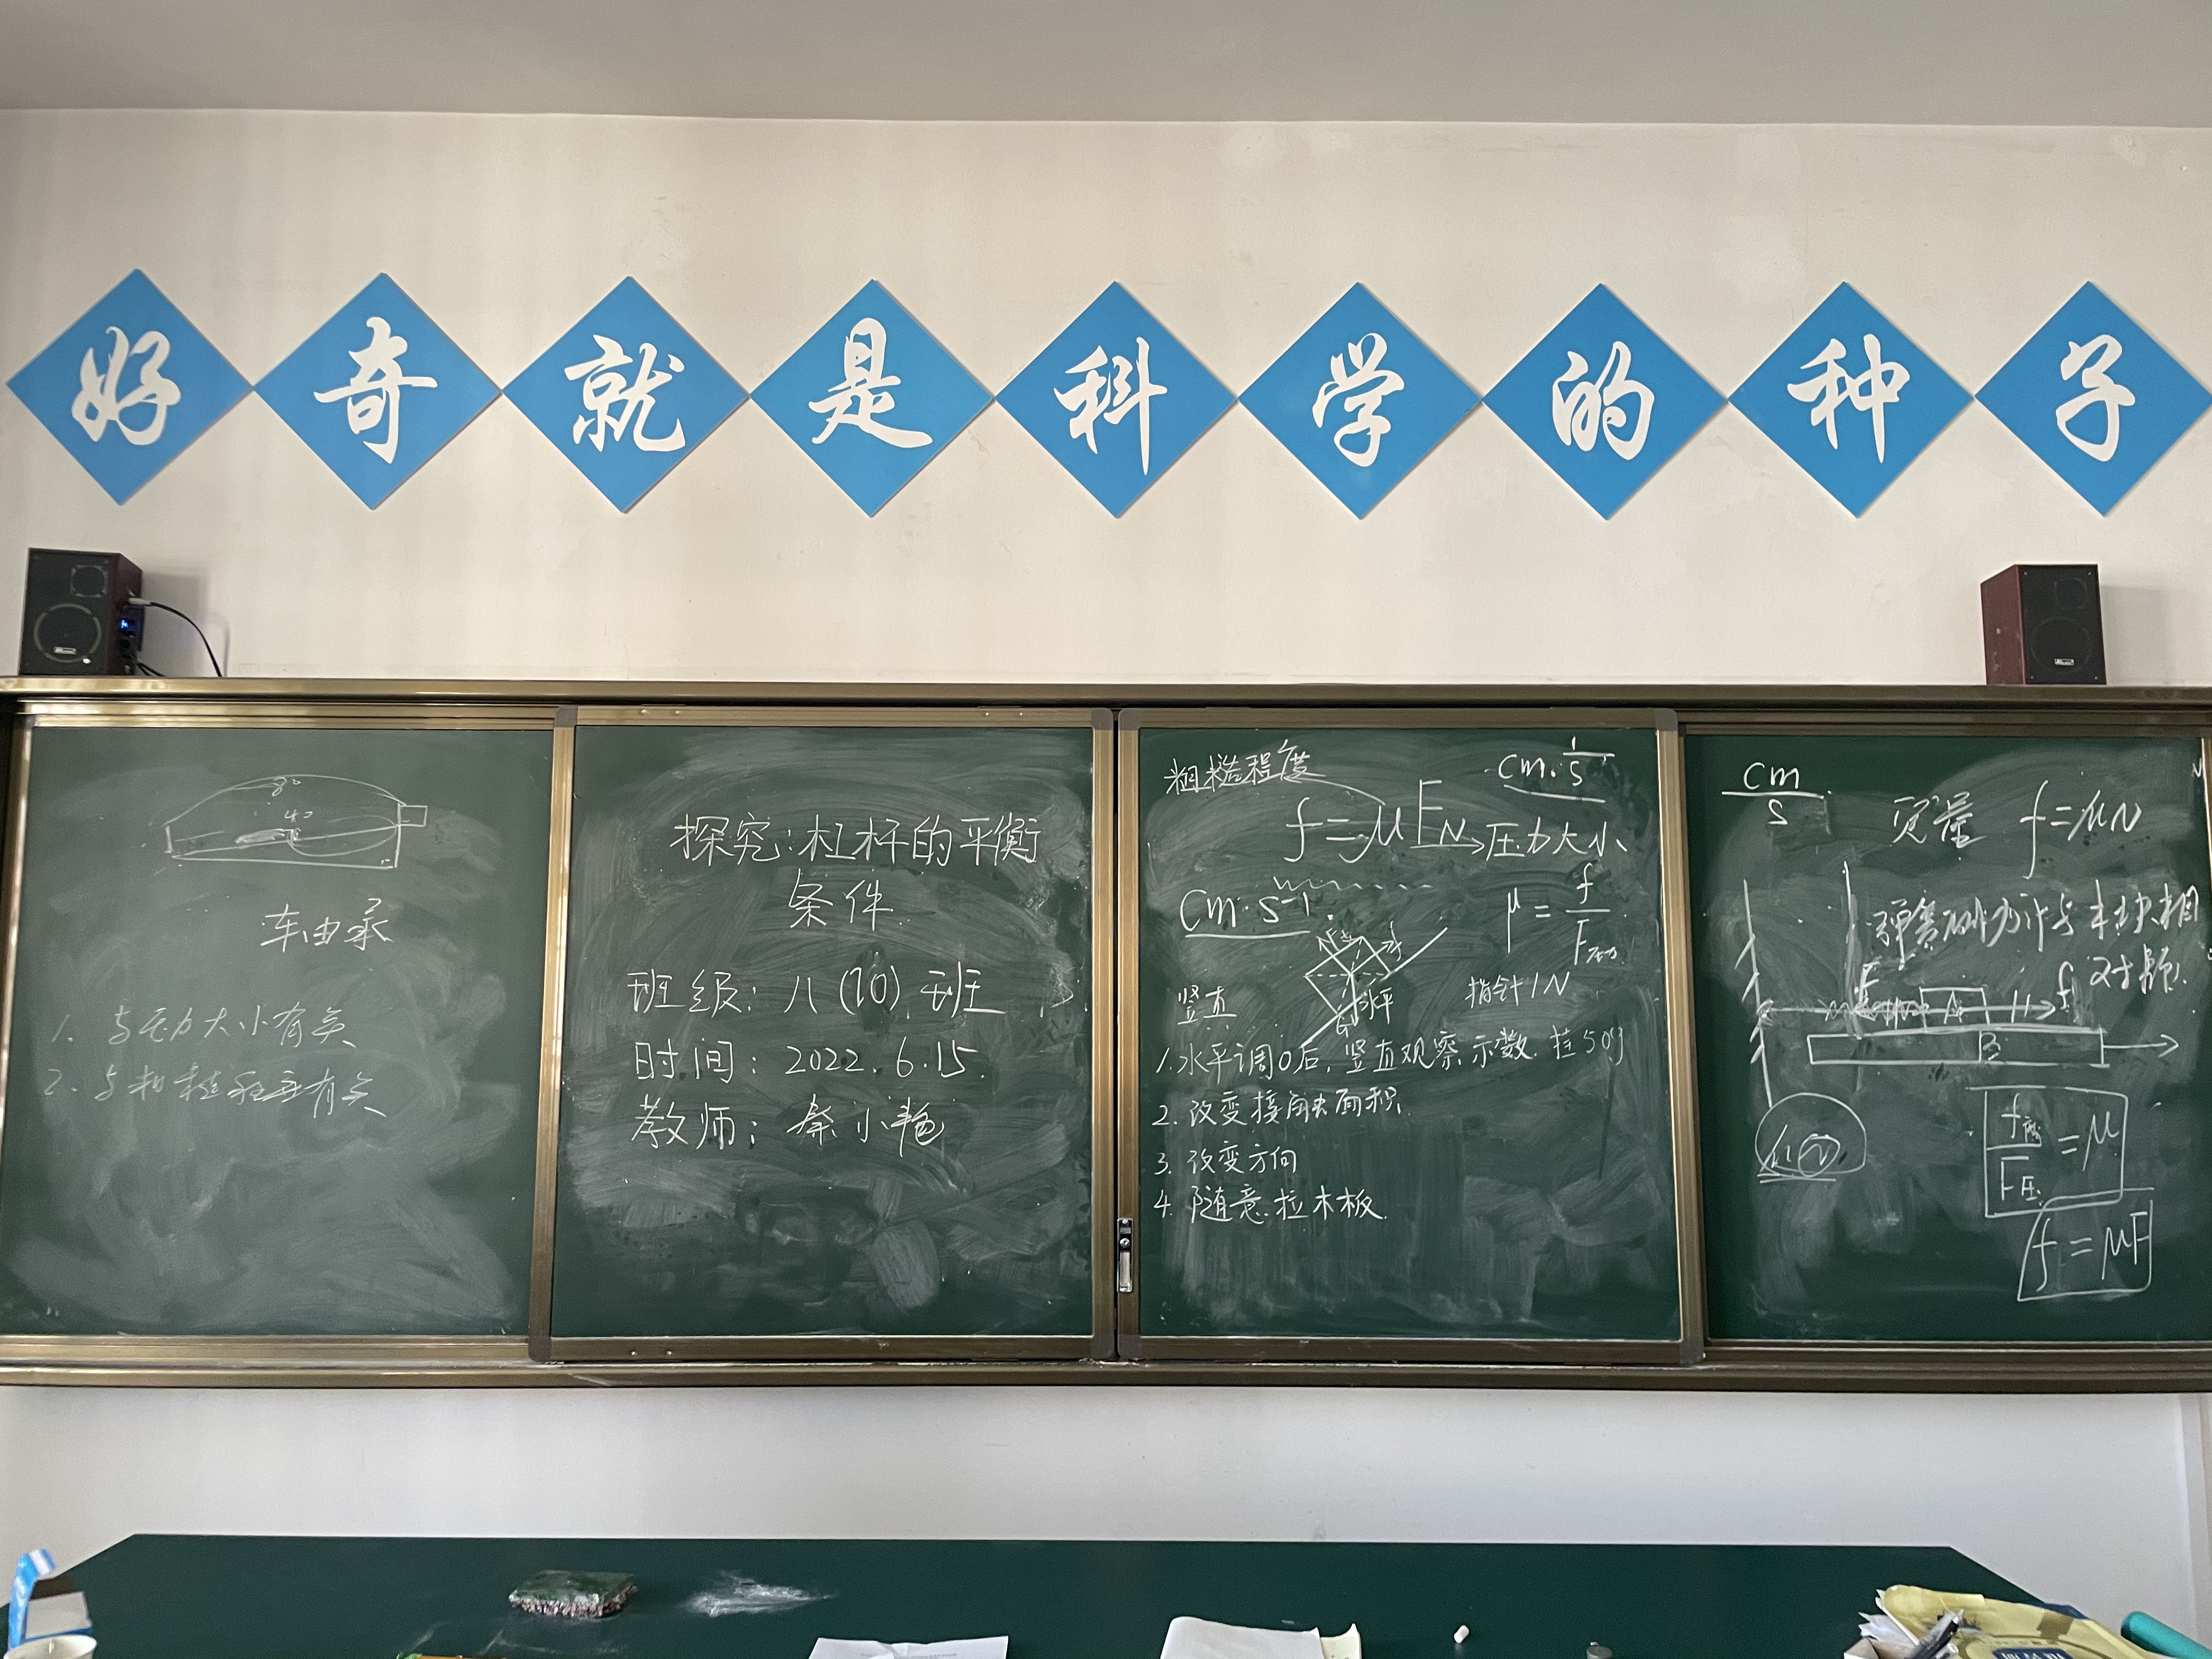 好奇就是科学的种子
80
40
车由承
1. 与压力大小有关
2. 与粗糙程度有关
探究:杠杆的平衡
条件
班级: 八(10)班
时间: 2022.6.15.
教师: 秦小艳
粗糙程度
cm·1/s
f=μFN→压力大小
cm·s⁻¹.
μ=f/F压力
竖直
水平
G
指针1N
1.水平调0后,竖直观察示数.挂50g
2.改变接触面积.
3.改变方向
4.随意拉木板.
cm/s
f=μN
弹簧测力计与木块相
对静.
F
A
f
B
f/F压=μ
f=μF